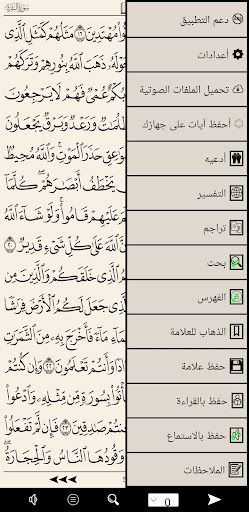 سورة البقرة
وا۟ مُهْتَدِينَ ١٦ مَثَلُهُمْ كَمَثَلِ ٱلَّذِى
حَوْلَهُۥ ذَهَبَ ٱللَّهُ بِنُورِهِمْ وَتَرَكَهُمْ
بُكْمٌ عُمْىٌ فَهُمْ لَا يَرْجِعُونَ
ظُلُمَٰتٌ وَرَعْدٌ وَبَرْقٌ يَجْعَلُونَ
عِقِ حَذَرَ ٱلْمَوْتِ وَٱللَّهُ مُحِيطٌ
يَخْطَفُ أَبْصَٰرَهُمْ
عَلَيْهِمْ قَامُوا۟ وَلَوْ شَآءَ ٱللَّهُ
ٱللَّهَ عَلَىٰ كُلِّ شَىْءٍ قَدِيرٌ ٢٠
كُمُ ٱلَّذِى خَلَقَكُمْ وَٱلَّذِينَ مِن
ٱلَّذِى جَعَلَ لَكُمُ ٱلْأَرْضَ فِرَٰشًا
مَآءً فَأَخْرَجَ بِهِۦ مِنَ ٱلثَّمَرَٰتِ
دَادًا وَأَنتُمْ تَعْلَمُونَ ٢٢ وَإِن كُنتُمْ
أْتُوا۟ بِسُورَةٍ مِّن مِّثْلِهِۦ وَٱدْعُوا۟
كُنتُمْ صَٰدِقِينَ ٢٣ فَإِن لَّمْ تَفْعَلُوا۟
وَقُودُهَا ٱلنَّاسُ وَٱلْحِجَارَةُ
دعم التطبيق
أعدادات
تحميل الملفات الصوتية
أحفظ آيات على جهازك
أدعيه
التفسير
تراجم
بحث
الفهرس
الذهاب للعلامة
حفظ علامة
حفظ بالقراءة
حفظ بالاستماع
الملاحظات
0